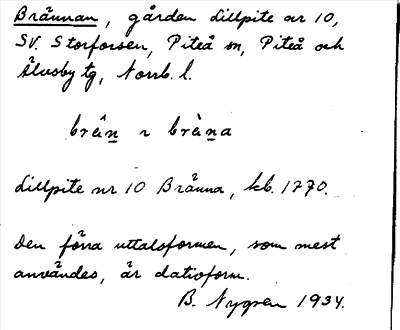 Brännan, gården Lillpite nr 10,
SV. Storforsen, Piteå sn, Piteå och
Älvsby tg, Norrb. l.
brä̂n ~ brä̀na
Lillpite nr 10 Bränna, kb. 1770.
Den förra uttalsformen, som mest
användes, är dativform.
B. Nygren 1934.